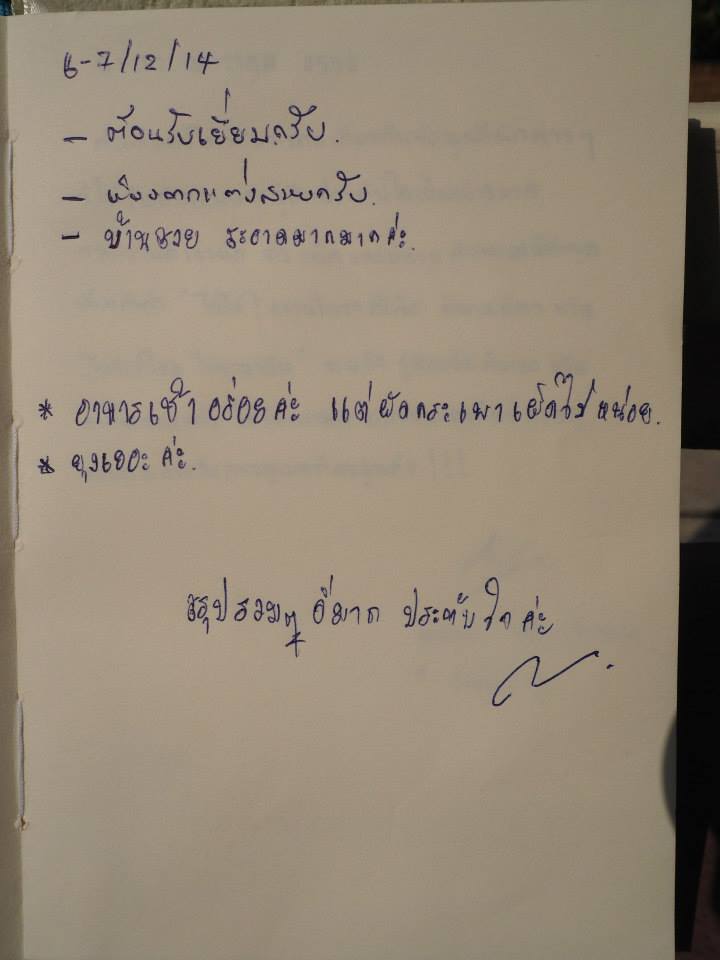 6-7/12/14
- ต้อนรับเยี่ยมครับ.
- ห้องตกแต่งสวยครับ.
- บ้านสวย สะอาดมากมากค่ะ.
* อาหารเช้า อร่อยค่ะ แต่ผัดกระเพาเผ็ดไปหน่อย.
* ยุงเยอะค่ะ.
สรุปรวมๆ ดีมาก ประทับใจค่ะ